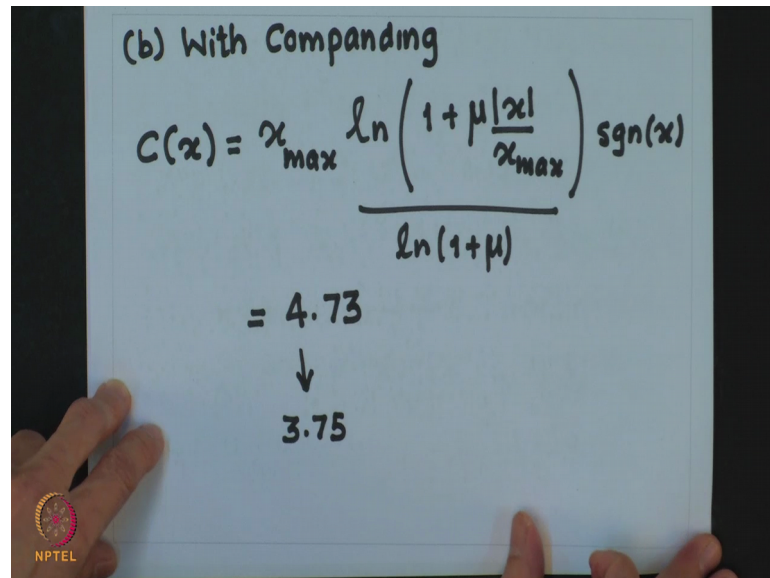 (b) With Companding
C(x) = x_max ln(1 + μ|x|/x_max) / ln(1+μ) sgn(x)
= 4.73
↓
3.75
NPTEL